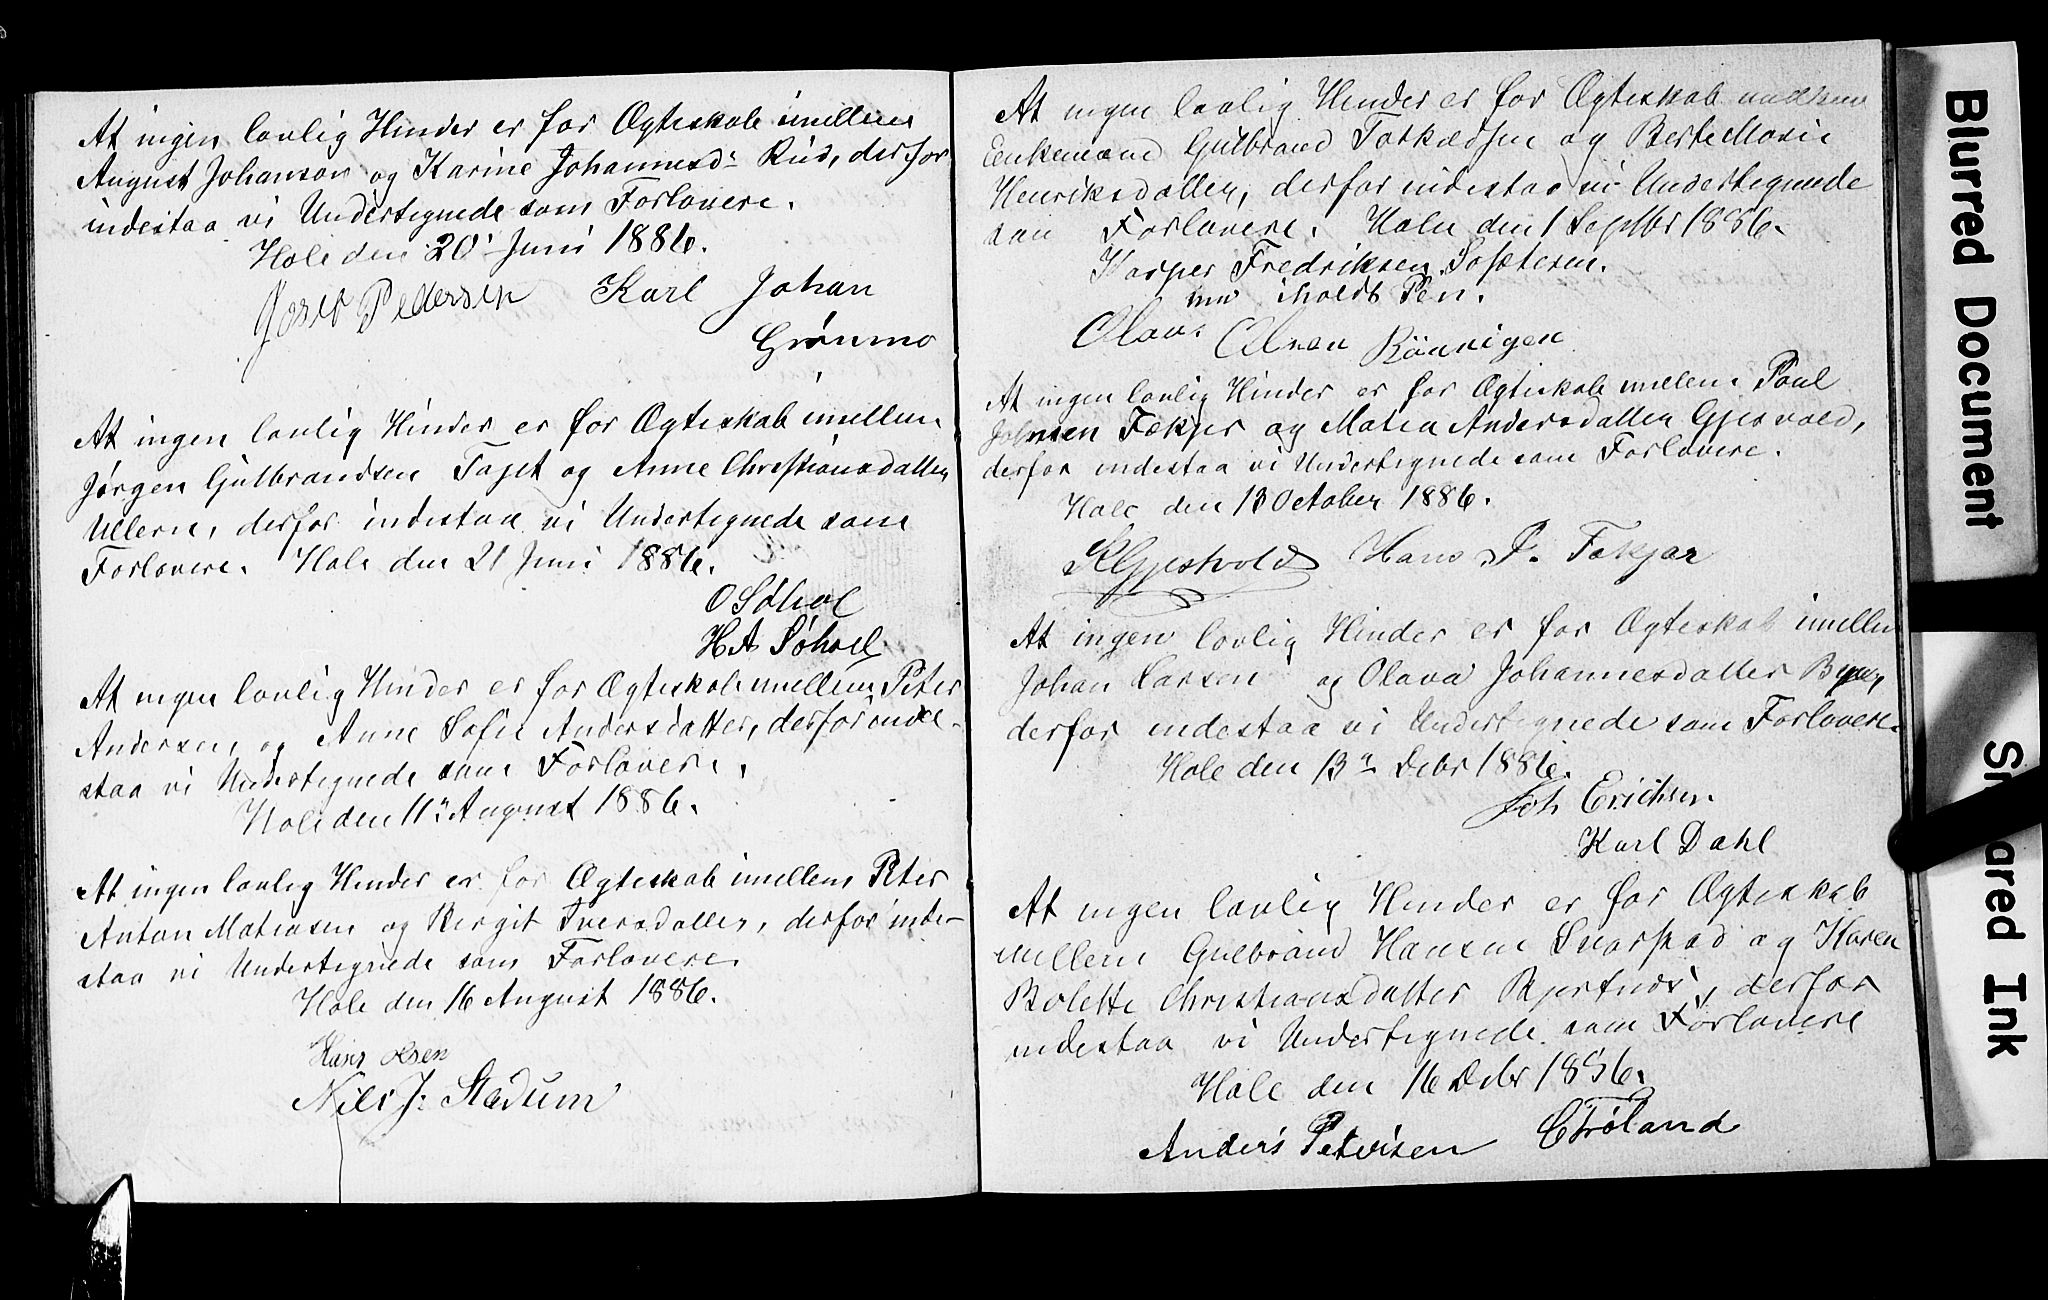 At ingen lovlig Hinder er for Ægteskab imellem
August Johanson og Karine Johannesd: Rud, derfor
indestaa vi Undertegnede som Forlovere.
Hole den 20 Juni 1886.
Josef Pedersen Karl Johan
Grønmo
At ingen lovlig Hinder er for Ægteskab imellem
Jørgen Gulbrandsen Fajet og Anne Christiansdatter
Ullern, derfor indestaa vi Undertegnede som
Forlovere. Hole den 21 Juni 1886.
O Søhol
H A Søhoel
At ingen lovlig Hinder er for Ægteskab imellem Peter
Andersen, og Anne Sofie Andersdatter, derfor inde-
staa vi Undertegnede som Forlovere.
Hole den 11te August 1886.
At ingen lovlig Hinder er for Ægteskab imellem Peter
Anton Matiasen og Birgit Iversdatter, derfor inde-
staa vi Undertegnede som Forlovere
Hole den 16 August 1886.
Hans Olsen
Nils J. Stadum
At ingen lovlig Hinder er for Ægteskab mellem
Enkemand Gulbrand og Berte Marie
Henriksdatter, derfor indestaa vi Undertegnede
som Forlovere. Hole den 1 Septbr 1886.
Kasper Fredriksen
m iholdt Pen.
Olaus Olsen Rønnigen
At ingen lovlig Hinder er for Ægteskab imellem Paul
Johnsen Fekjer og Matea Andersdatter Gjesvold,
derfor indestaa vi Undertegnede som Forlovere.
Hole den 13 October 1886.
Gjesvold Hans P. Fekjær
At ingen lovlig Hinder er for Ægteskab imellem
Johan Larsen og Olava Johannesdatter
derfor indestaa vi Undertegnede som Forlovere.
Hole den 13de Debr 1886.
Joh Erichsen
Karl Dahl
At ingen lovlig Hinder er for Ægteskab
imellem Gulbrand Hansen og Karen
Bolette Christiansdatter Bjertnes, derfor
indestaa vi Undertegnede som Forlovere
Hole den 16 Debr 1886.
Anders Petersen C Frøland
Blurred Document
Ink